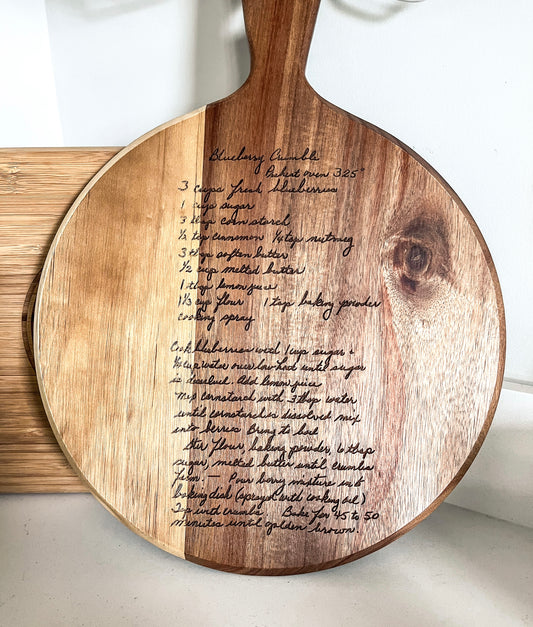 Blueberry Crumble
Preheat oven 325°
3 cups fresh blueberries
1 cups sugar
3 tbsp corn starch
½ tsp cinnamon ¼ tsp nutmeg
3 tbsp soften butter
½ cup melted butter
1 tbsp lemon juice
1⅓ cup flour 1 tsp baking powder
cooking spray
Cook blueberries with 1 cup sugar +
cup water over low heat until sugar
is dissolved. Add lemon juice
Mix cornstarch with 3 tbsp water
until cornstarch is dissolved mix
into berries Bring to boil
Stir flour, baking powder, 6 tbsp
sugar, melted butter until crumbs
form. — Pour berry mixture into
baking dish (sprayed with cooking oil)
Top with crumbs Bake for 45 to 50
minutes until golden brown.